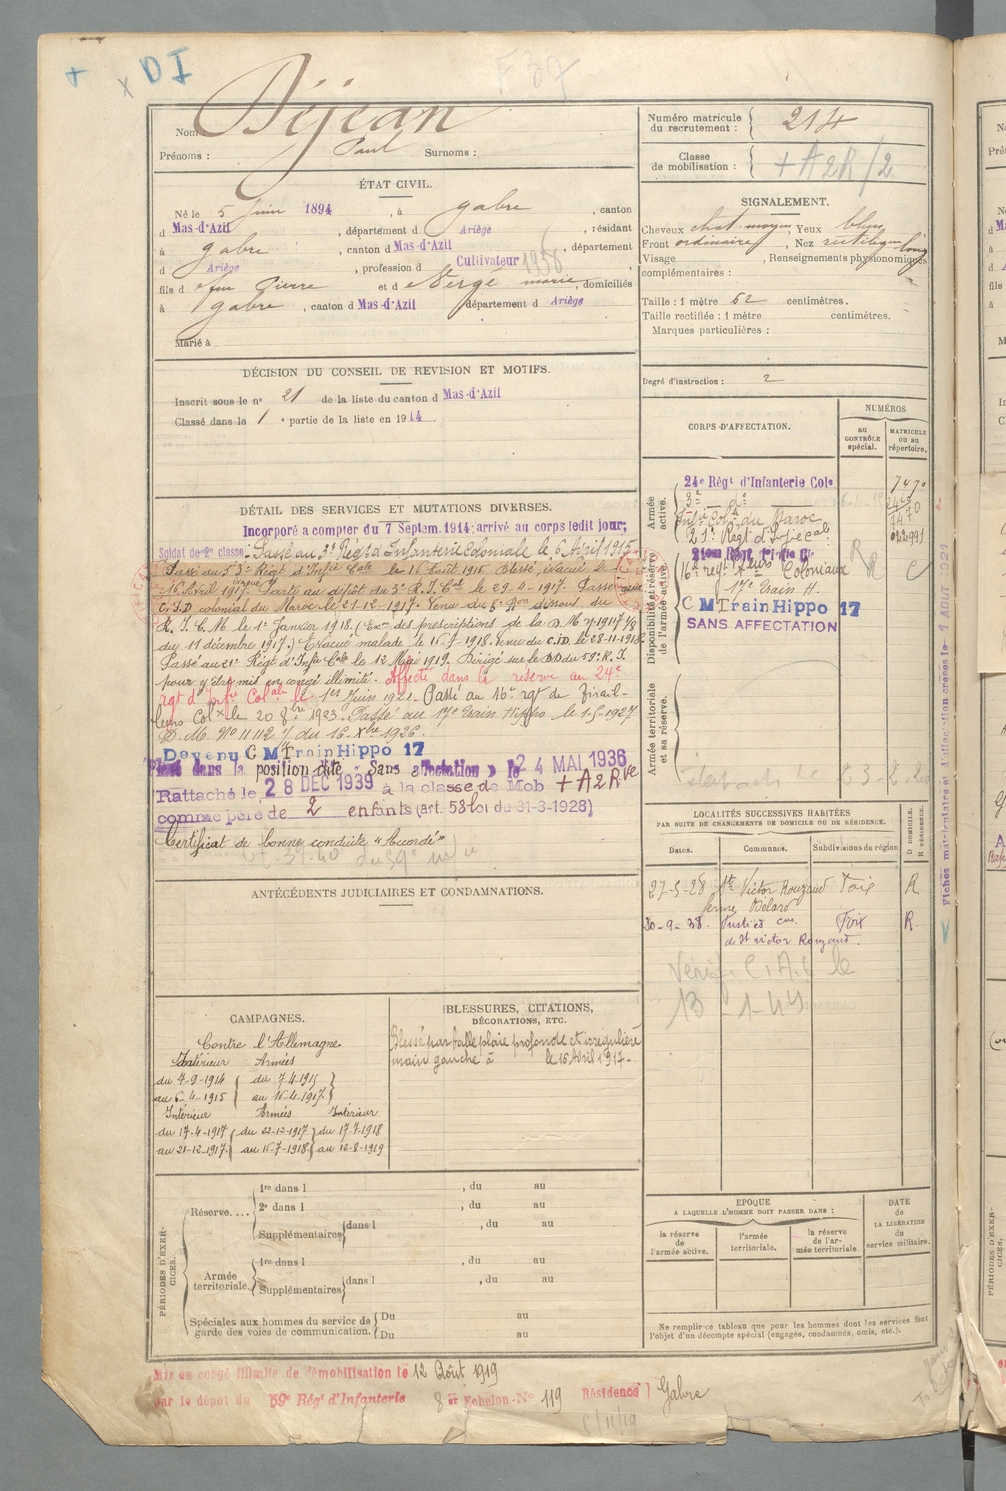 D I
Nom : Déjean
Prénoms : Paul Surnoms :
ÉTAT CIVIL.
Né le 5 Juin 1894, à Gabre, canton
d Mas-d'Azil, département d Ariège, résidant
à Gabre, canton d Mas-d'Azil, département
d Ariège, profession d Cultivateur
fils d feu Pierre et d marie, domiciliés
à Gabre, canton d Mas-d'Azil département d Ariège
Marié à
DÉCISION DU CONSEIL DE REVISION ET MOTIFS.
Inscrit sous le n° 21 de la liste du canton d Mas-d'Azil
Classé dans la 1e partie de la liste en 1914
DÉTAIL DES SERVICES ET MUTATIONS DIVERSES.
Incorporé a compter du 7 Septem. 1914: arrivé au corps ledit jour;
Soldat de 2e classe. Passé au 3e Régt d'Infanterie coloniale le 6 Avril 1915
Passé au 53e Régt d'Infie Cale le 16 Août 1915. Blessé, évacué le
16 Avril 1917. Parti au dépôt du 3e R.I.Cal le 29-4-1917. Passé au
C.I.D colonial du Maroc le 21-12-1917. Venu du
R.I.C.M le 1er Janvier 1918. ( des prescriptions de la D.M
du 11 décembre 1917.) Evacué malade le 16-7-1918. Venu du C.I.D le 28-11-1918
Passé au 21e Régt d'Infie Cale le 12 Mars 1919. Dirigé sur le DD du 59e R.I.
pour y être mis en congé illimité. Affecté dans la réserve au 24e
rgt d'Infie Colale le 1er Juin 1921. Passé au 16e rgt de Tirail-
leurs Colx le 20 8bre 1923. Passé au 17e Train Hippo le 1-5-1927
D.M. N° 11112 du 16 Xbre 1926.
Devenu C M Train Hippo 17
Placé dans la position dite " Sans affectation " le 24 MAI 1936
Rattaché le, 28 DEC 1939 à la classe de Mob + A2Rve
comme père de 2 enfants (art. 58 loi du 31-3-1928)
Certificat de bonne conduite "Accordé"
ANTÉCÉDENTS JUDICIAIRES ET CONDAMNATIONS.
CAMPAGNES.
Contre l'Allemagne
Intérieur Armées
du 7-9-1914 du 7-4-1915
au 6-4-1915 au 16-4-1917
Intérieur Armées Intérieur
du 17-4-1917 du 22-12-1917 du 17-7-1918
au 21-12-1917 au 16-7-1918 au 12-8-1919
BLESSURES, CITATIONS,
DÉCORATIONS, ETC.
Blessé par balle plaie profonde et irrégulière
main gauche à le 16 Avril 1917.
PÉRIODES D'EXERCICES.
Réserve....
1re dans l , du au
2e dans l , du au
Supplémentaires dans l , du au
Armée territoriale
1re dans l , du au
Supplémentaires dans l , du au
Spéciales aux hommes du service de
garde des voies de communication.
Du au
Du au
Mis en congé illimité de démobilisation le 12 Août 1919
par le dépôt du 59e Régt d'Infanterie 8 Echelon-N° 119 Résidence Gabre
Numéro matricule
du recrutement : 214
Classe
de mobilisation : + A2R/2
SIGNALEMENT.
Cheveux chat. moyen Yeux bleus
Front ordinaire, Nez rectiligne long
Visage , Renseignements physionomiques
complémentaires :
Taille : 1 mètre 62 centimètres.
Taille rectifiée : 1 mètre centimètres.
Marques particulières :
Degré d'instruction : 2
CORPS D'AFFECTATION.
NUMÉROS
au CONTRÔLE spécial.
MATRICULE ou au répertoire.
Armée active.
24e Régt d'Infanterie Cole 7470
3e do
Infie Cole du Maroc 7470
21e Régt d'Infie cale
Disponibilité et réserve de l'armée active.
16e regt Coloniaux
17e Train H.
C M Train Hippo 17
SANS AFFECTATION
Armée territoriale et sa réserve.
LOCALITÉS SUCCESSIVES HABITÉES
PAR SUITE DE CHANGEMENTS DE DOMICILE OU DE RÉSIDENCE.
Dates. Communes. Subdivisions de région D DOMICILE. R RÉSIDENCE.
27-5-28 St Victor Rouzaud Foix R
ferme
30-9-38. cne Foix R.
de St victor Rouzaud.
13-1-44
EPOQUE
A LAQUELLE L'HOMME DOIT PASSER DANS :
la réserve de l'armée active.
l'armée territoriale.
la réserve de l'armée territoriale.
DATE DE LA LIBÉRATION du service militaire.
Ne remplir ce tableau que pour les hommes dont les services font
l'objet d'un décompte spécial (engagés, condamnés, omis, etc.).